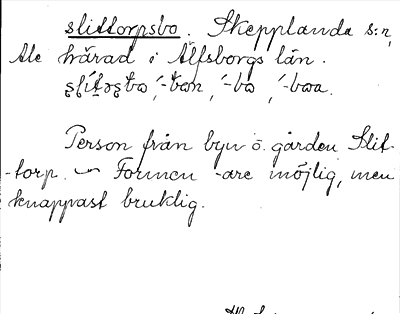 slittorpsbo. Skepplanda s:n,
Ale härad i Älfsborgs län.
Person från byn o. gården Slit-
-torp. — Formen -are möjlig, men
knappast bruklig.